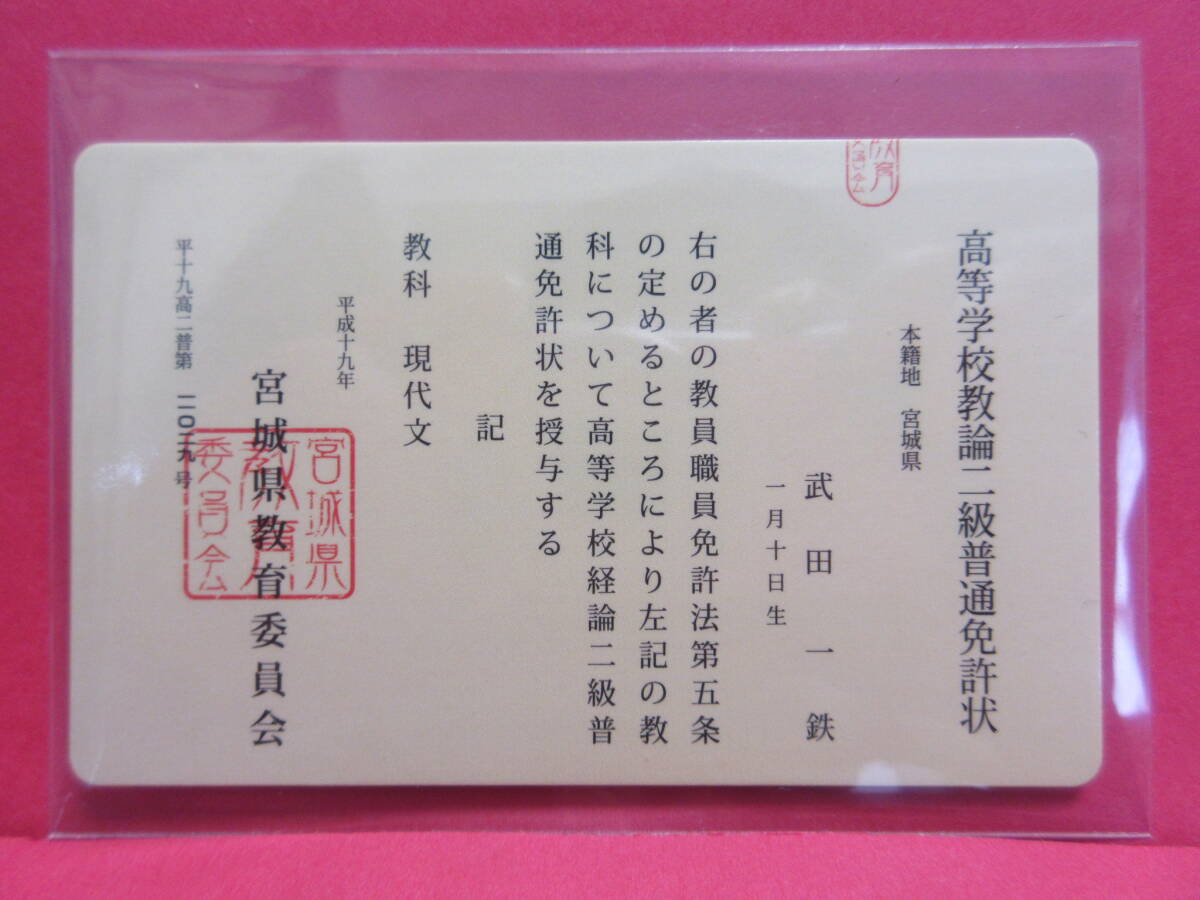 高等学校教論二級普通免許状
本籍地 宮城県
武田一鉄
一月十日生
右の者の教員職員免許法第五条
の定めるところにより左記の教
科について高等学校経論二級普
通免許状を授与する
記
教科 現代文
平成十九年
宮城県教育委員会
宮城県
教育
委員会
平十九高二普第 号